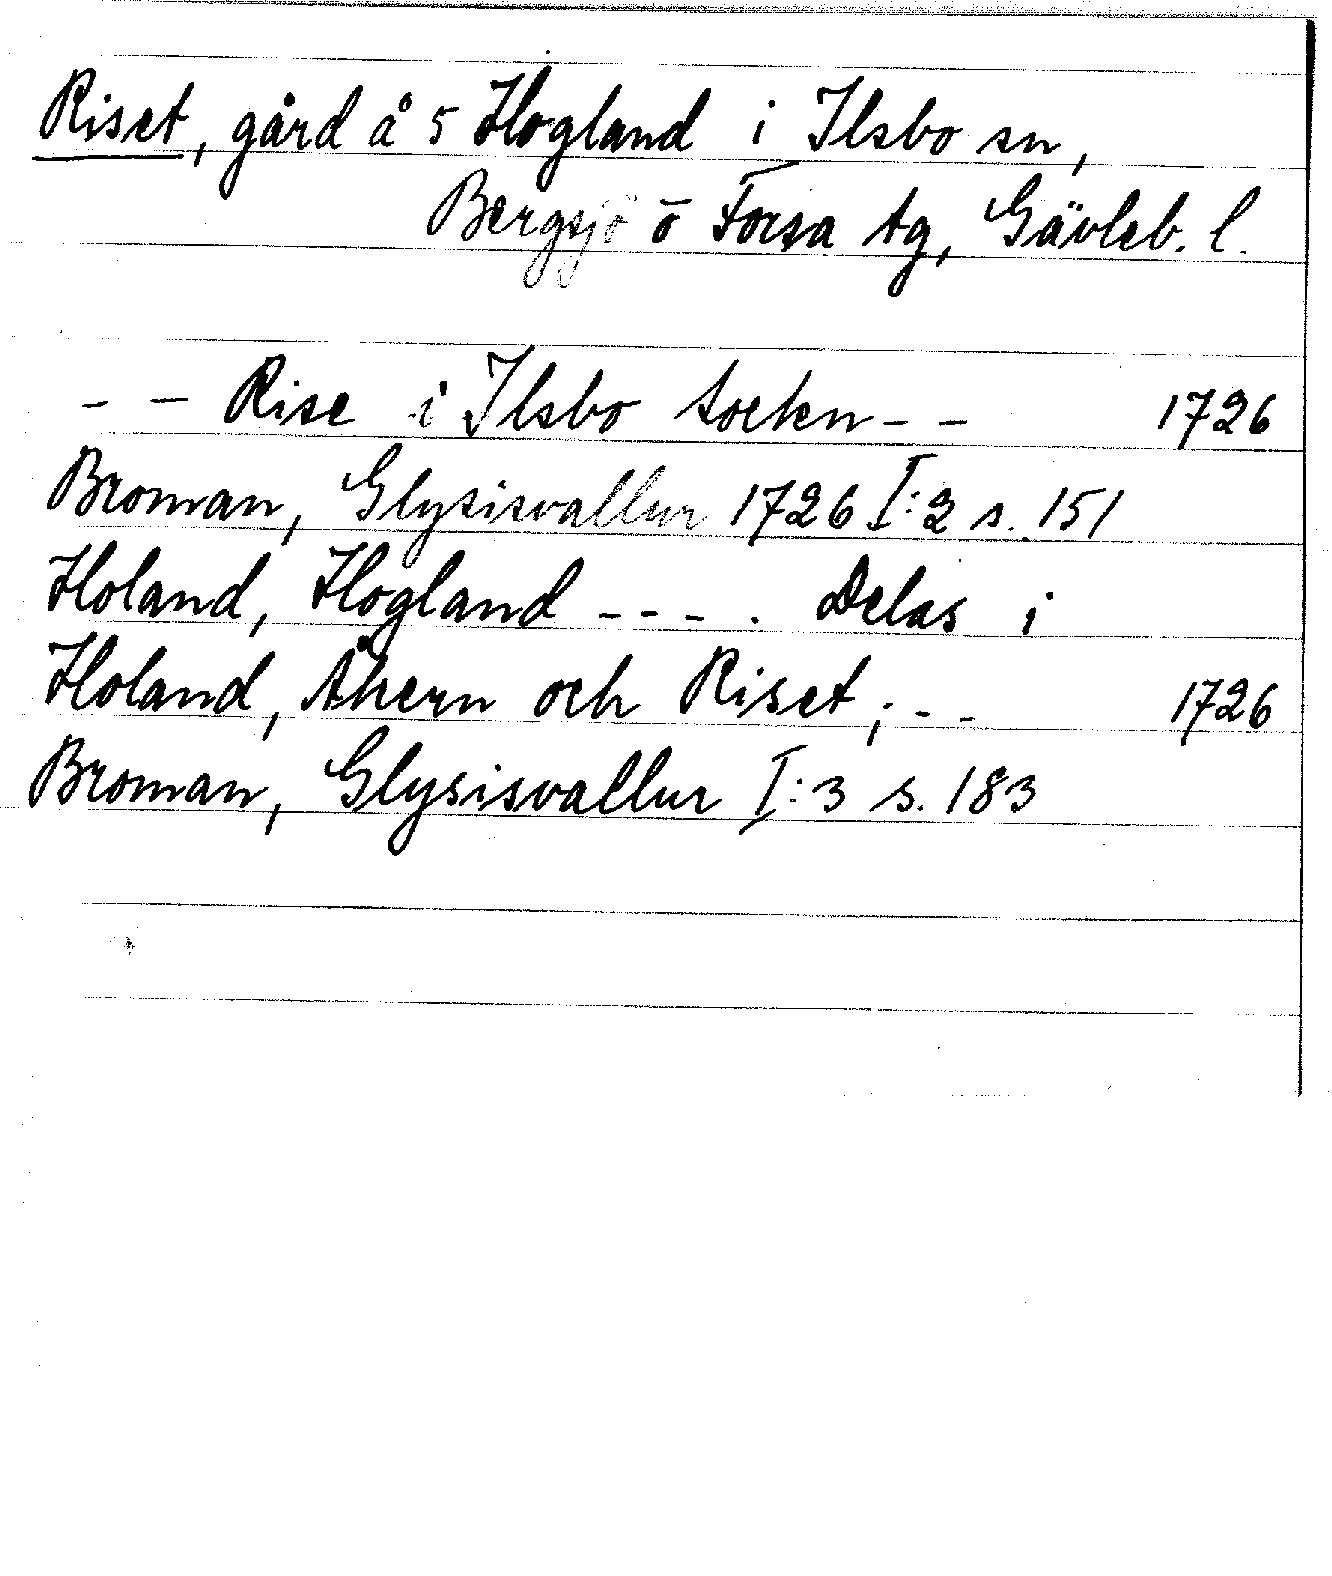 Riset, gård å 5 Hogland i Ilsbo sn,
Bergsjö o Forsa tg, Gävleb. l.
- - Rise i Ilsbo socken - - 1726
Broman, Glysisvallur 1726 I:2 s. 151
Holand, Hogland - - - . Delas i
Holand, Åkern och Riset; - - 1726
Broman, Glysisvallur I:3 s. 183